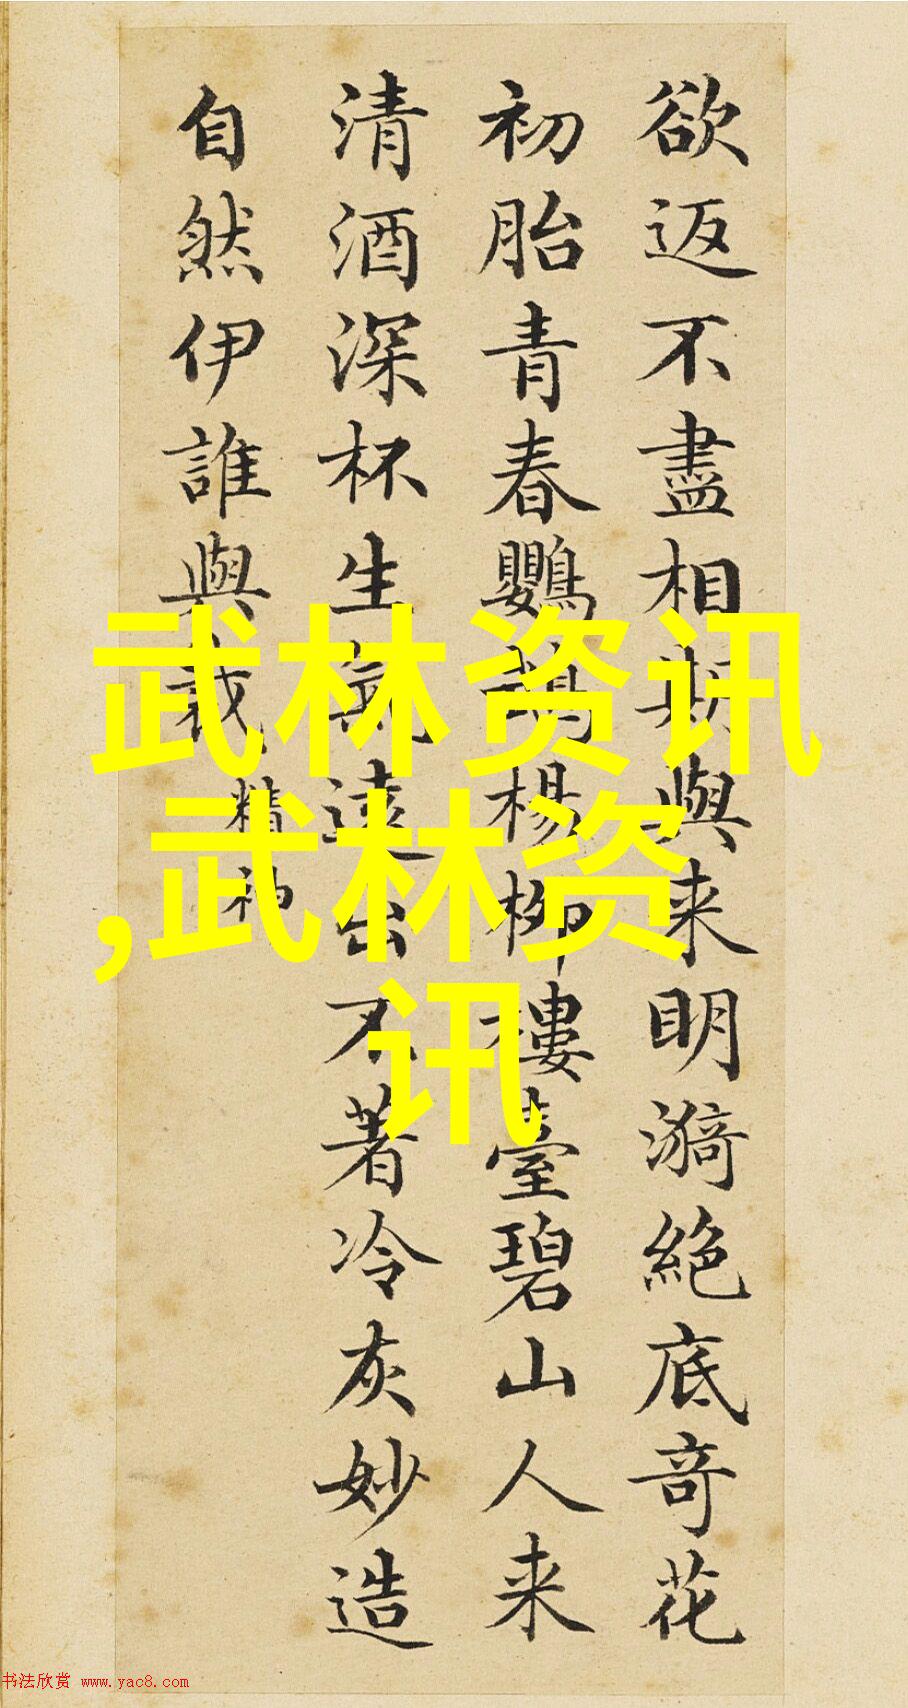 欲返不盡相期與来明漪絕底奇花
初胎青春鸚鵡楊柳樓臺碧山人来
清酒深杯生氣遠出不著冷灰妙造
自然伊誰與裁
精神
武林资讯
,武林资
讯
书法欣赏 www.yac8.com